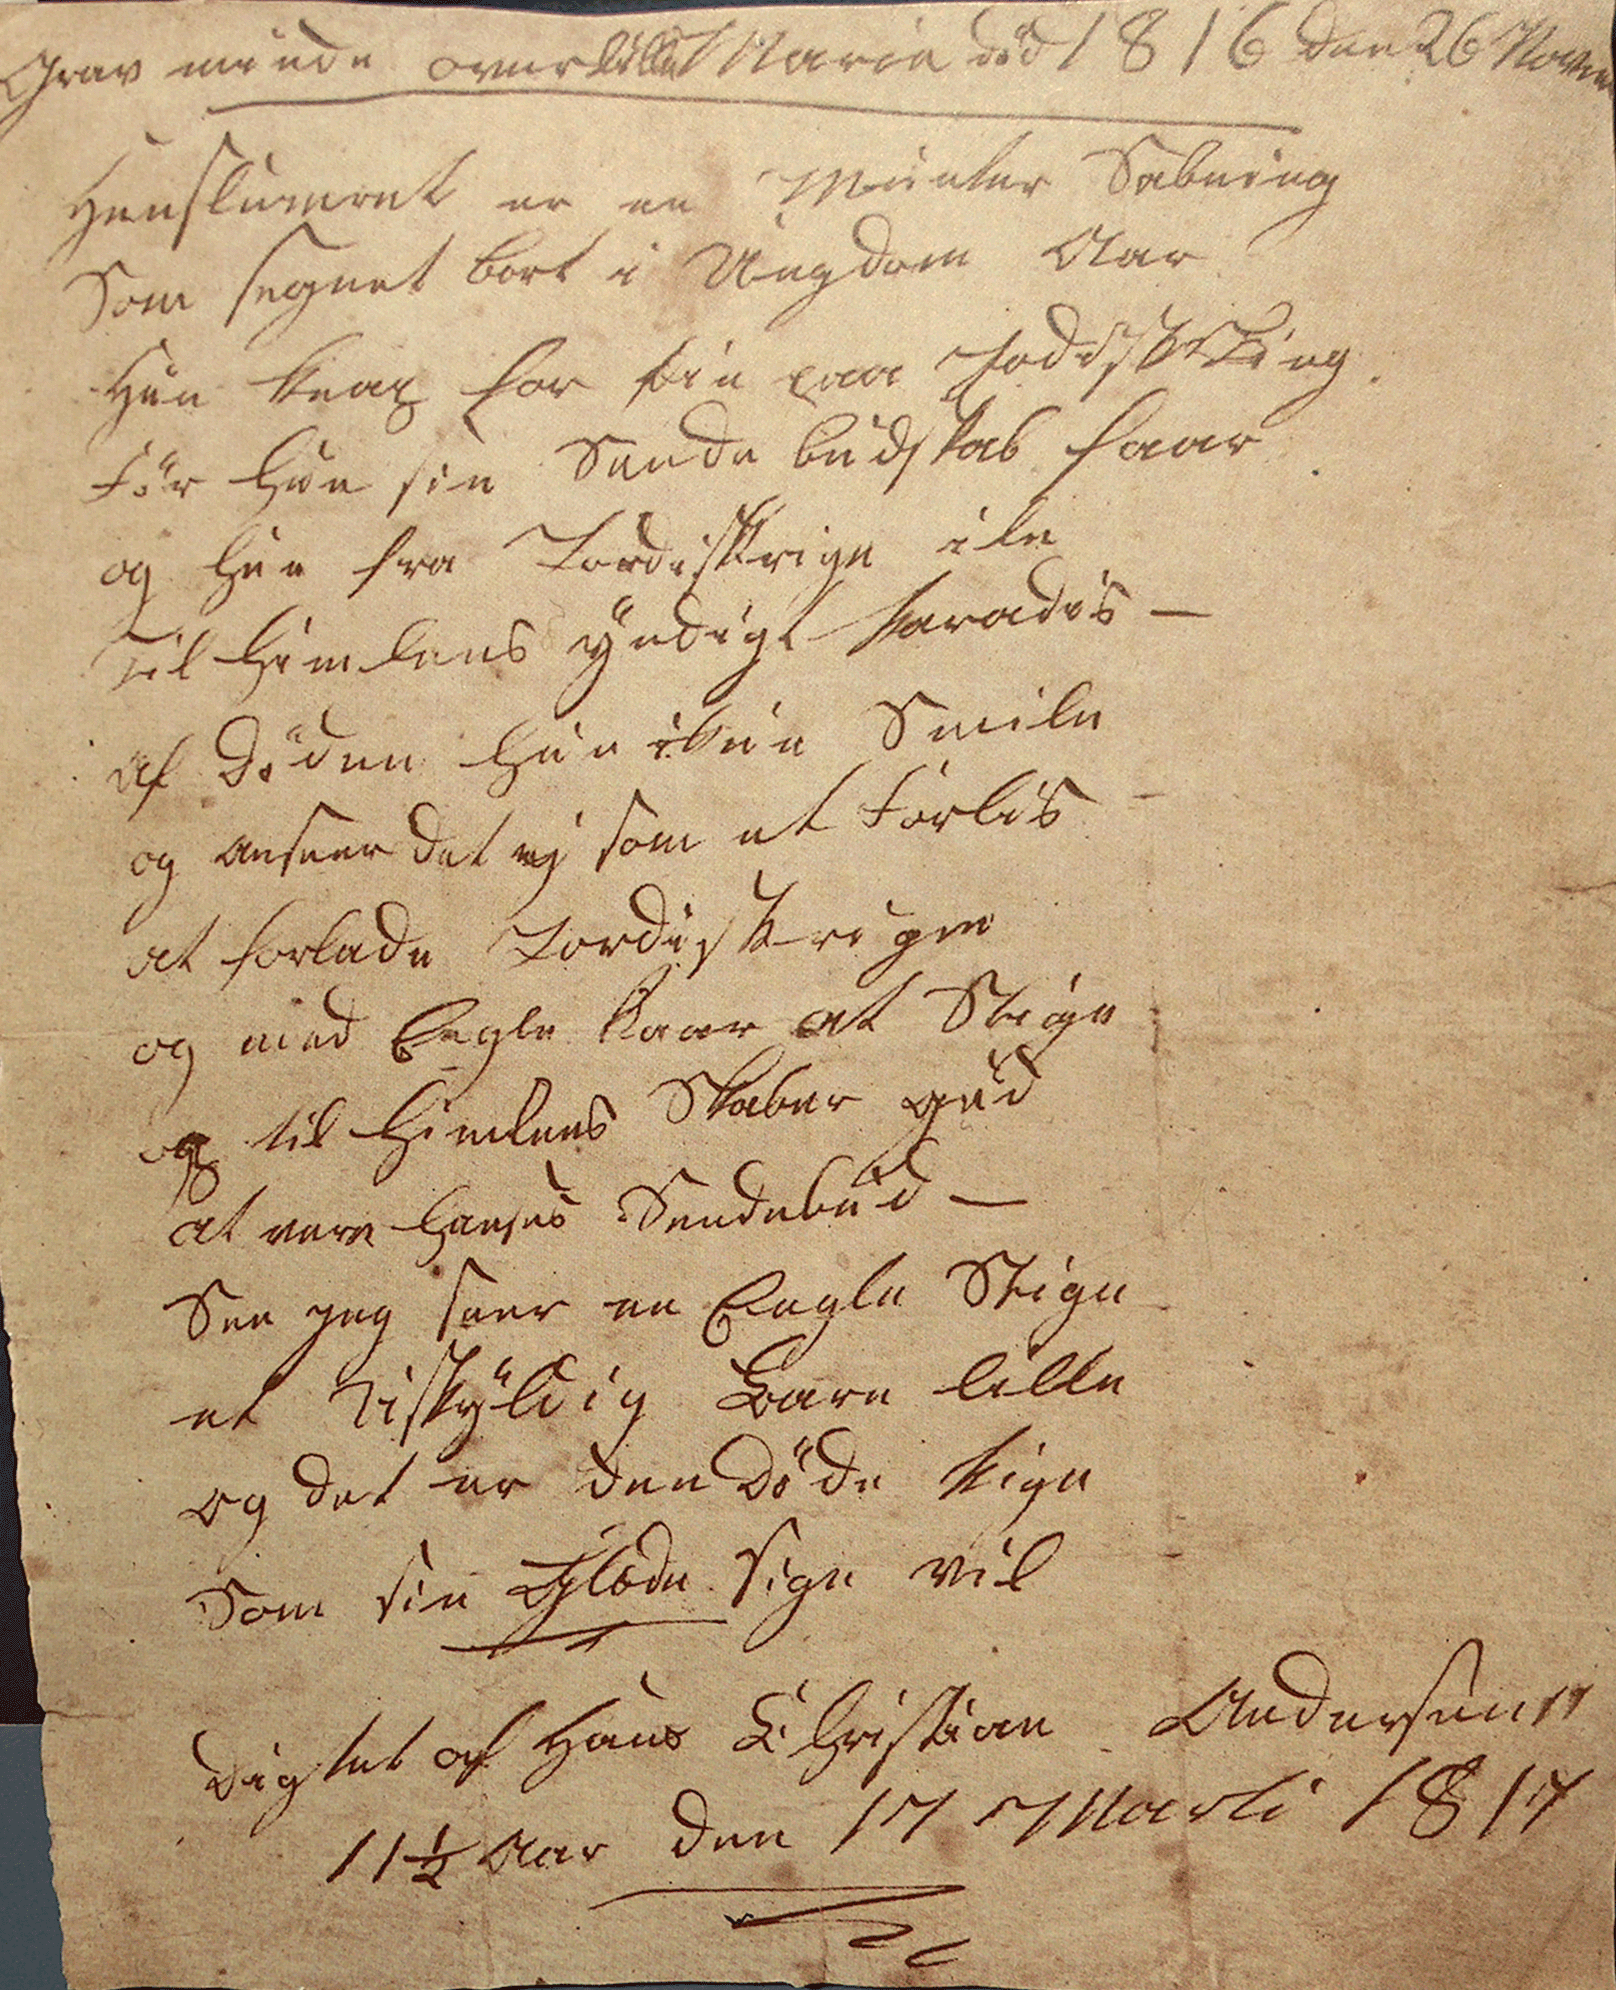 Grav minde over lille Maria död 1816 den 26 Novem
Henslumret er en Munter Sabning
Som segnet bort i Ungdom Aar
Hun knap for sin paa Jordisk Ting
Før Hun sin Sende budskab faar
og hun fra Jordiskrige ile
Til Himlens ÿndigt Paradis —
af Döden hun ikun Smile
og anseer det ej som et Forlis
at forlade Jordiskrigen
og med Engle kaar at Stige
og til Himlens Skaber gud
at vere Hanses Sendebud —
See jeg seer en Engle Stige
et Uskÿldig Barn lille
og det er den Döde Pige
Som sin Glæde sige vil
Digtet af Hans Christian Andersen
11½ Aar den 17 Marti 1817